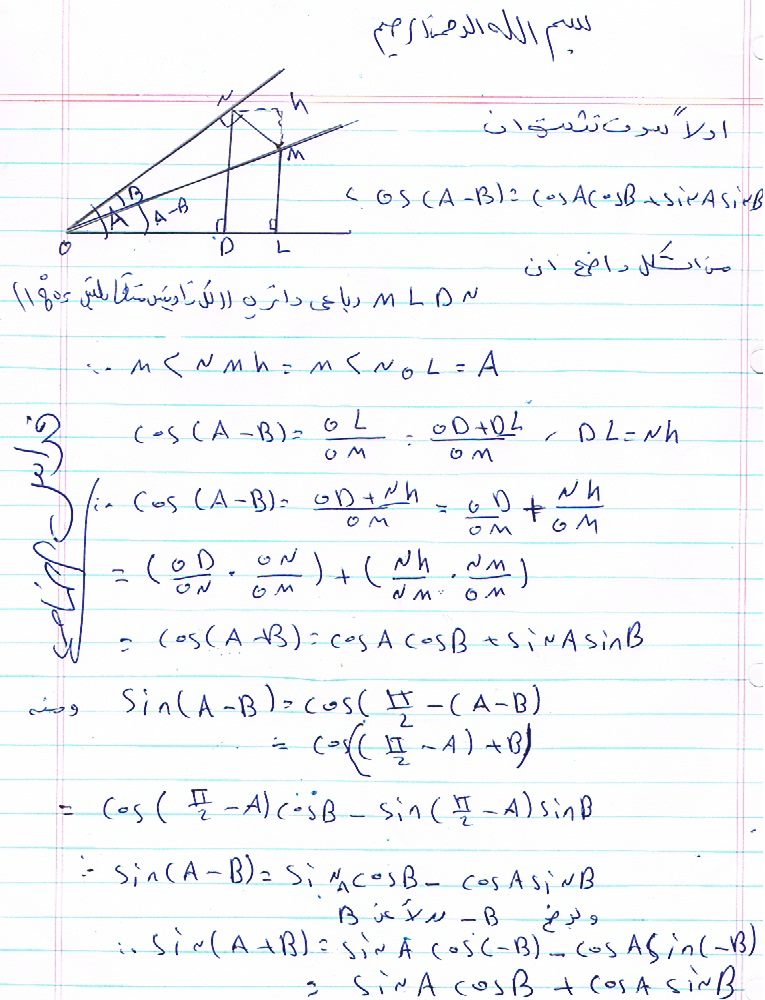 بسم الله الرحمن الرحيم
N h
M
B
A A-B
O D L
اولاً سوف نثبت ان
COS(A-B)= cosAcosB+sinAsinB
من الشكل واضح ان
M L D N رباعي دائري (( لكل زاويتين متقابلتين 180°))
∴ m < N M h = m < N O L = A
cos(A-B)= OL/OM = OD+DL/OM , DL=Nh
∴ cos(A-B)= OD+Nh/OM = OD/OM + Nh/OM
= (OD/ON . ON/OM) + (Nh/NM . NM/OM)
= cos(A+B)=cosAcosB+sinAsinB
ومنه Sin(A-B)=cos(π/2-(A-B)
= cos((π/2-A)+B)
= cos(π/2-A)cosB-sin(π/2-A)sinB
∴ sin(A-B)=sinAcosB-cosAsinB
B بدلاً عن -B
∴ sin(A+B)=sinA cos(-B)-cosAsin(-B)
= sinA cosB + cosA sinB